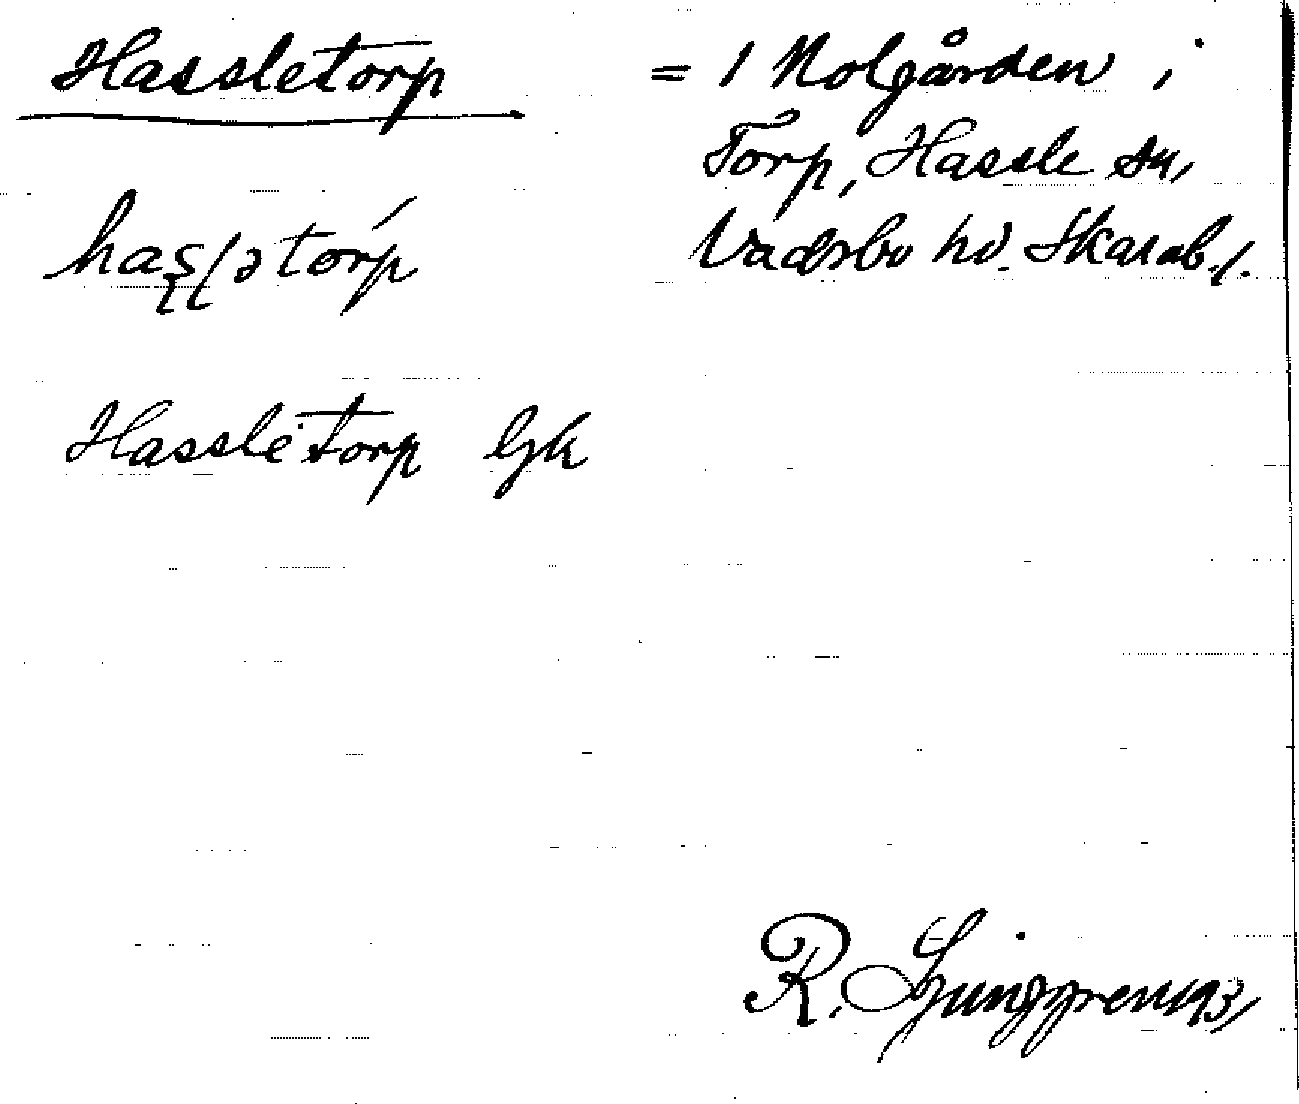 Hassletorp = 1 Nolgården i
Torp, Hassle sn,
Vadsbo hd. Skarab. l.
Hassletorp Gk
R. Ljunggren 1931